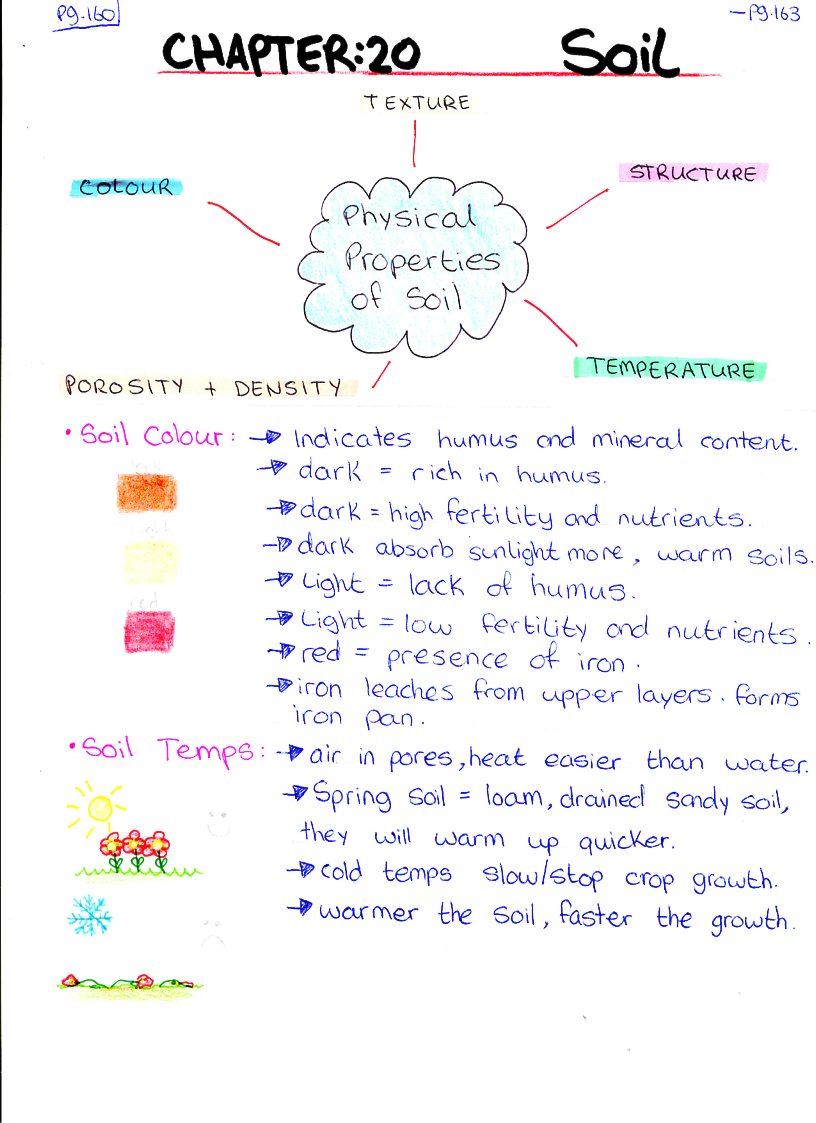 Pg.160
-Pg.163
CHAPTER:20 Soil
TEXTURE
COLOUR
STRUCTURE
Physical
Properties
of Soil
TEMPERATURE
POROSITY + DENSITY
• Soil Colour: → Indicates humus and mineral content.
→ dark = rich in humus.
→ dark = high fertility and nutrients.
→ dark absorb sunlight more, warm soils.
→ Light = lack of humus.
→ Light = low fertility and nutrients.
red
→ red = presence of iron.
→ iron leaches from upper layers. forms
iron pan.
• Soil Temps: → air in pores, heat easier than water.
→ Spring soil = loam, drained sandy soil,
they will warm up quicker.
→ cold temps slow/stop crop growth.
→ warmer the soil, faster the growth.